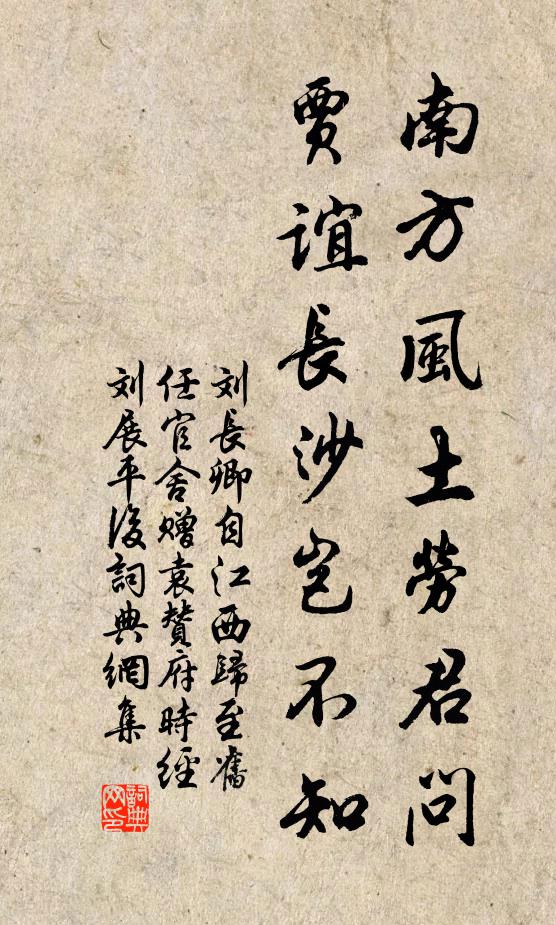 南方風土勞君問
賈誼長沙豈不知
刘長卿自江西歸至舊
任官舍贈袁贊府時經
刘展平後詞典網集
詞典
网印